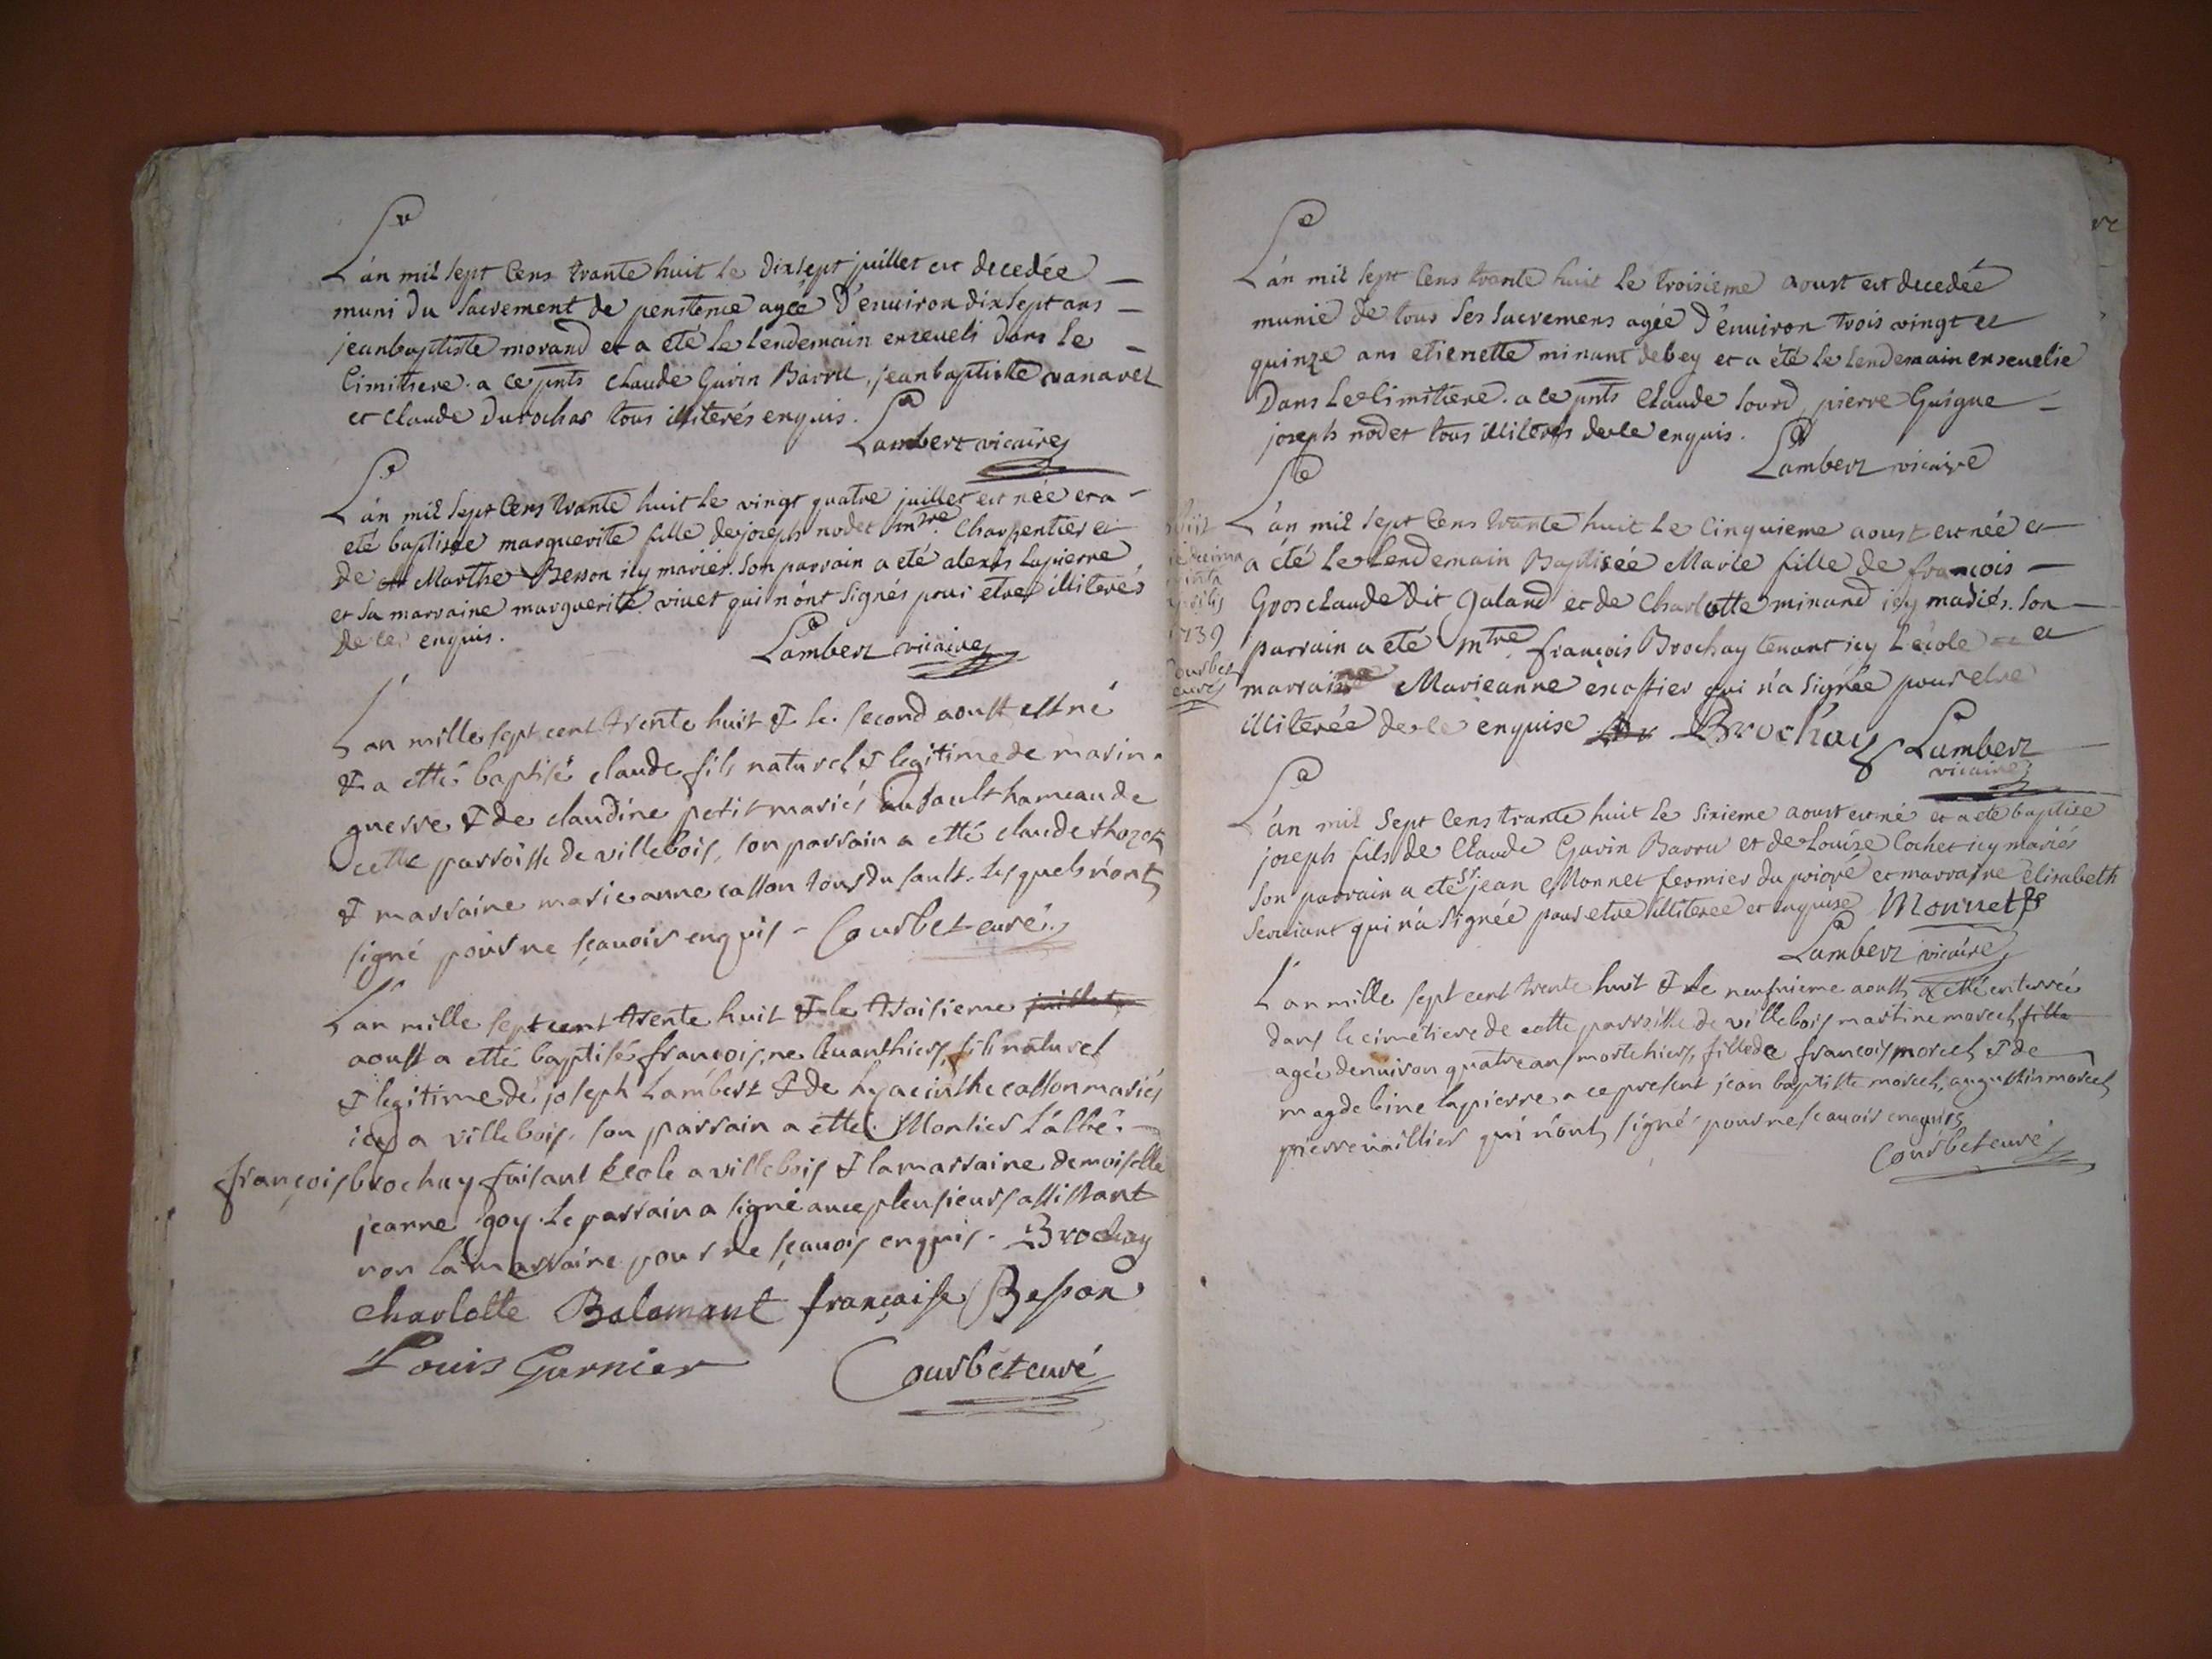 L'an mil sept Cens trante huit le dixsept juillet est decedée
muni du sacrement de penitence agée d'enuiron dixsept ans
jeanbaptiste morand et a eté le lendemain enseueli dans le
Cimitiere. a ce pnts Claude Guvin Barru, jeanbaptiste vanavel
et claude durochas tous illiterés enquis.
Lambert vicaire
L'an mil sept Cens trante huit le vingt quatre juillet est née et a
eté baptisée marguerite fille de joseph nodet mtre. Charpentier et
de Marthe Besson icy mariés. Son parrain a eté alexis Lapierre
et sa marraine marguerite viuet qui n'ont signés pour etre illiterés
de ce enquis.
Lambert vicaire
Lan mille sept cent trente huit & le second aoust est né
& a etté baptisé claude fils naturel & legitime de marin
guerre & de claudine petit mariés au sault hameau de
cette parroisse de villebois, son parrain a etté claude thozet
& marraine marieanne casson tous du sault. lesquels n'ont
signé pour ne sçauoir enquis - Courbet curé
Lan mille sept cent trente huit & le troisieme juillet
aoust a etté baptisé françois, ne auanthier, fils naturel
& legitime de joseph Lambert & de hyacinthe casson mariés
icy a villebois, son parrain a etté Monsier L'albé
françois brochay faisant lecole a villebois & la marraine demoiselle
jeanne goy. Le parrain a signé auec plusieurs assistant
non la marraine pour ne sçauoir enquis. Brochay
charlotte Balamant françaisse Besson
Louis Garnier Courbet curé
L'an mil sept Cens trante huit le troisieme aoust est decedée
munie de tous ses sacremens agée d'enuiron trois vingt et
quinze ans etienette minant debey et a été le lendemain enseuelie
Dans le Cimitiere. a ce pnts Claude Sourd, pierre Guigue
joseph nodet tous illiterés de ce enquis.
Lambert vicaire
L'an mil sept Cens trante huit le Cinquieme aoust est née et
a été le lendemain Baptisée Marie fille de françois
Grosclaude dit Galand et de Charlotte minand icy mariés. Son
parrain a eté mtre. françois Brochay tenant icy l'école et
marraine Marieanne escoffier qui n'a signée pour etre
illiterée de ce enquise Brochay Lambert
vicaire
1739
Courbet
curé
L'an mil Sept Cens trante huit le sixieme aoust est né et a eté baptisé
joseph fils de Claude Guvin Barru et de Louïse Cochet icy mariés
Son parrain a eté sr. jean Monnet fermier du prioré et marraine elisabeth
Seruiant qui n'a signée pour etre illiteree et enquise Monnet
Lambert vicaire
Lan mille sept cent trente huit & le neufuieme aoust a etté enterrée
dans le cimetiere de cette parroisse de villebois martine morel fille
agée denuiron quatre ans morte hier, fille de françois morel & de
magdeleine lapierre, a ce present jean baptiste morel, augustin morel
pierre vaillier qui n'ont signé pour ne scauoir enquis
Courbet curé